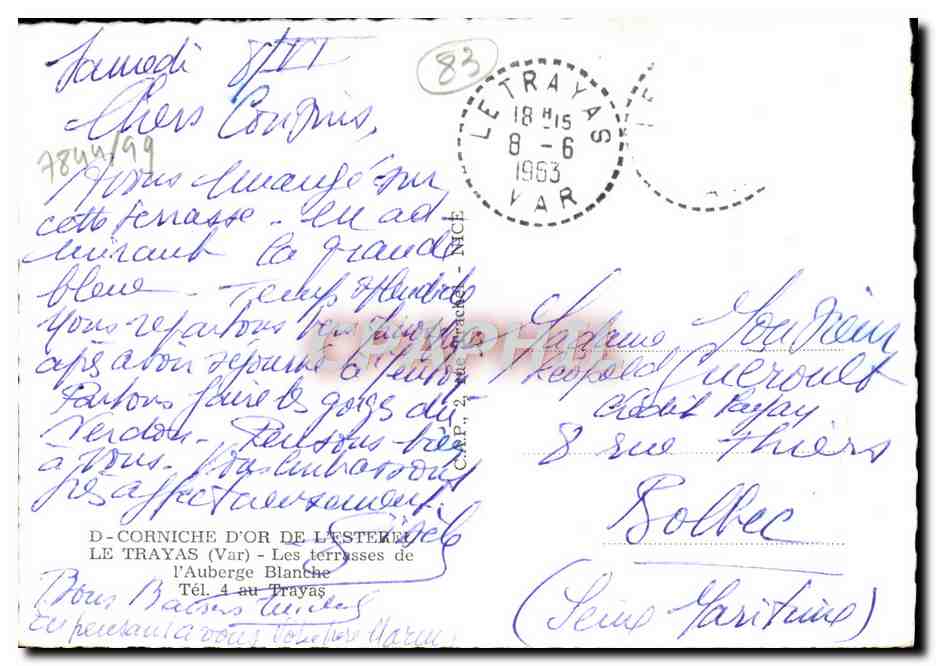 Samedi 8/VI
Chers Cousins,
7844/99
83
LE TRAYAS
18H-15
8-6
1963
VAR
Avons mangé sur
cette terrasse - en ad-
mirant la grande
bleue - Temps splendide
Nous repartons
après avoir séjourné à
Partons faire les gorges du
Verdon - Pensons bien
à vous. Vous embrassons
très affectueusement.
Gisèle
C.A.P., 2, rue - NICE
CPAPHIL
D - CORNICHE D'OR DE L'ESTEREL
LE TRAYAS (Var) - Les terrasses de
l'Auberge Blanche
Tél. 4 au Trayas
Bons Baisers
en pensant à vous
Madame Monsieur
Léopold Guéroult
8 rue Thiers
Bolbec
(Seine Maritime)